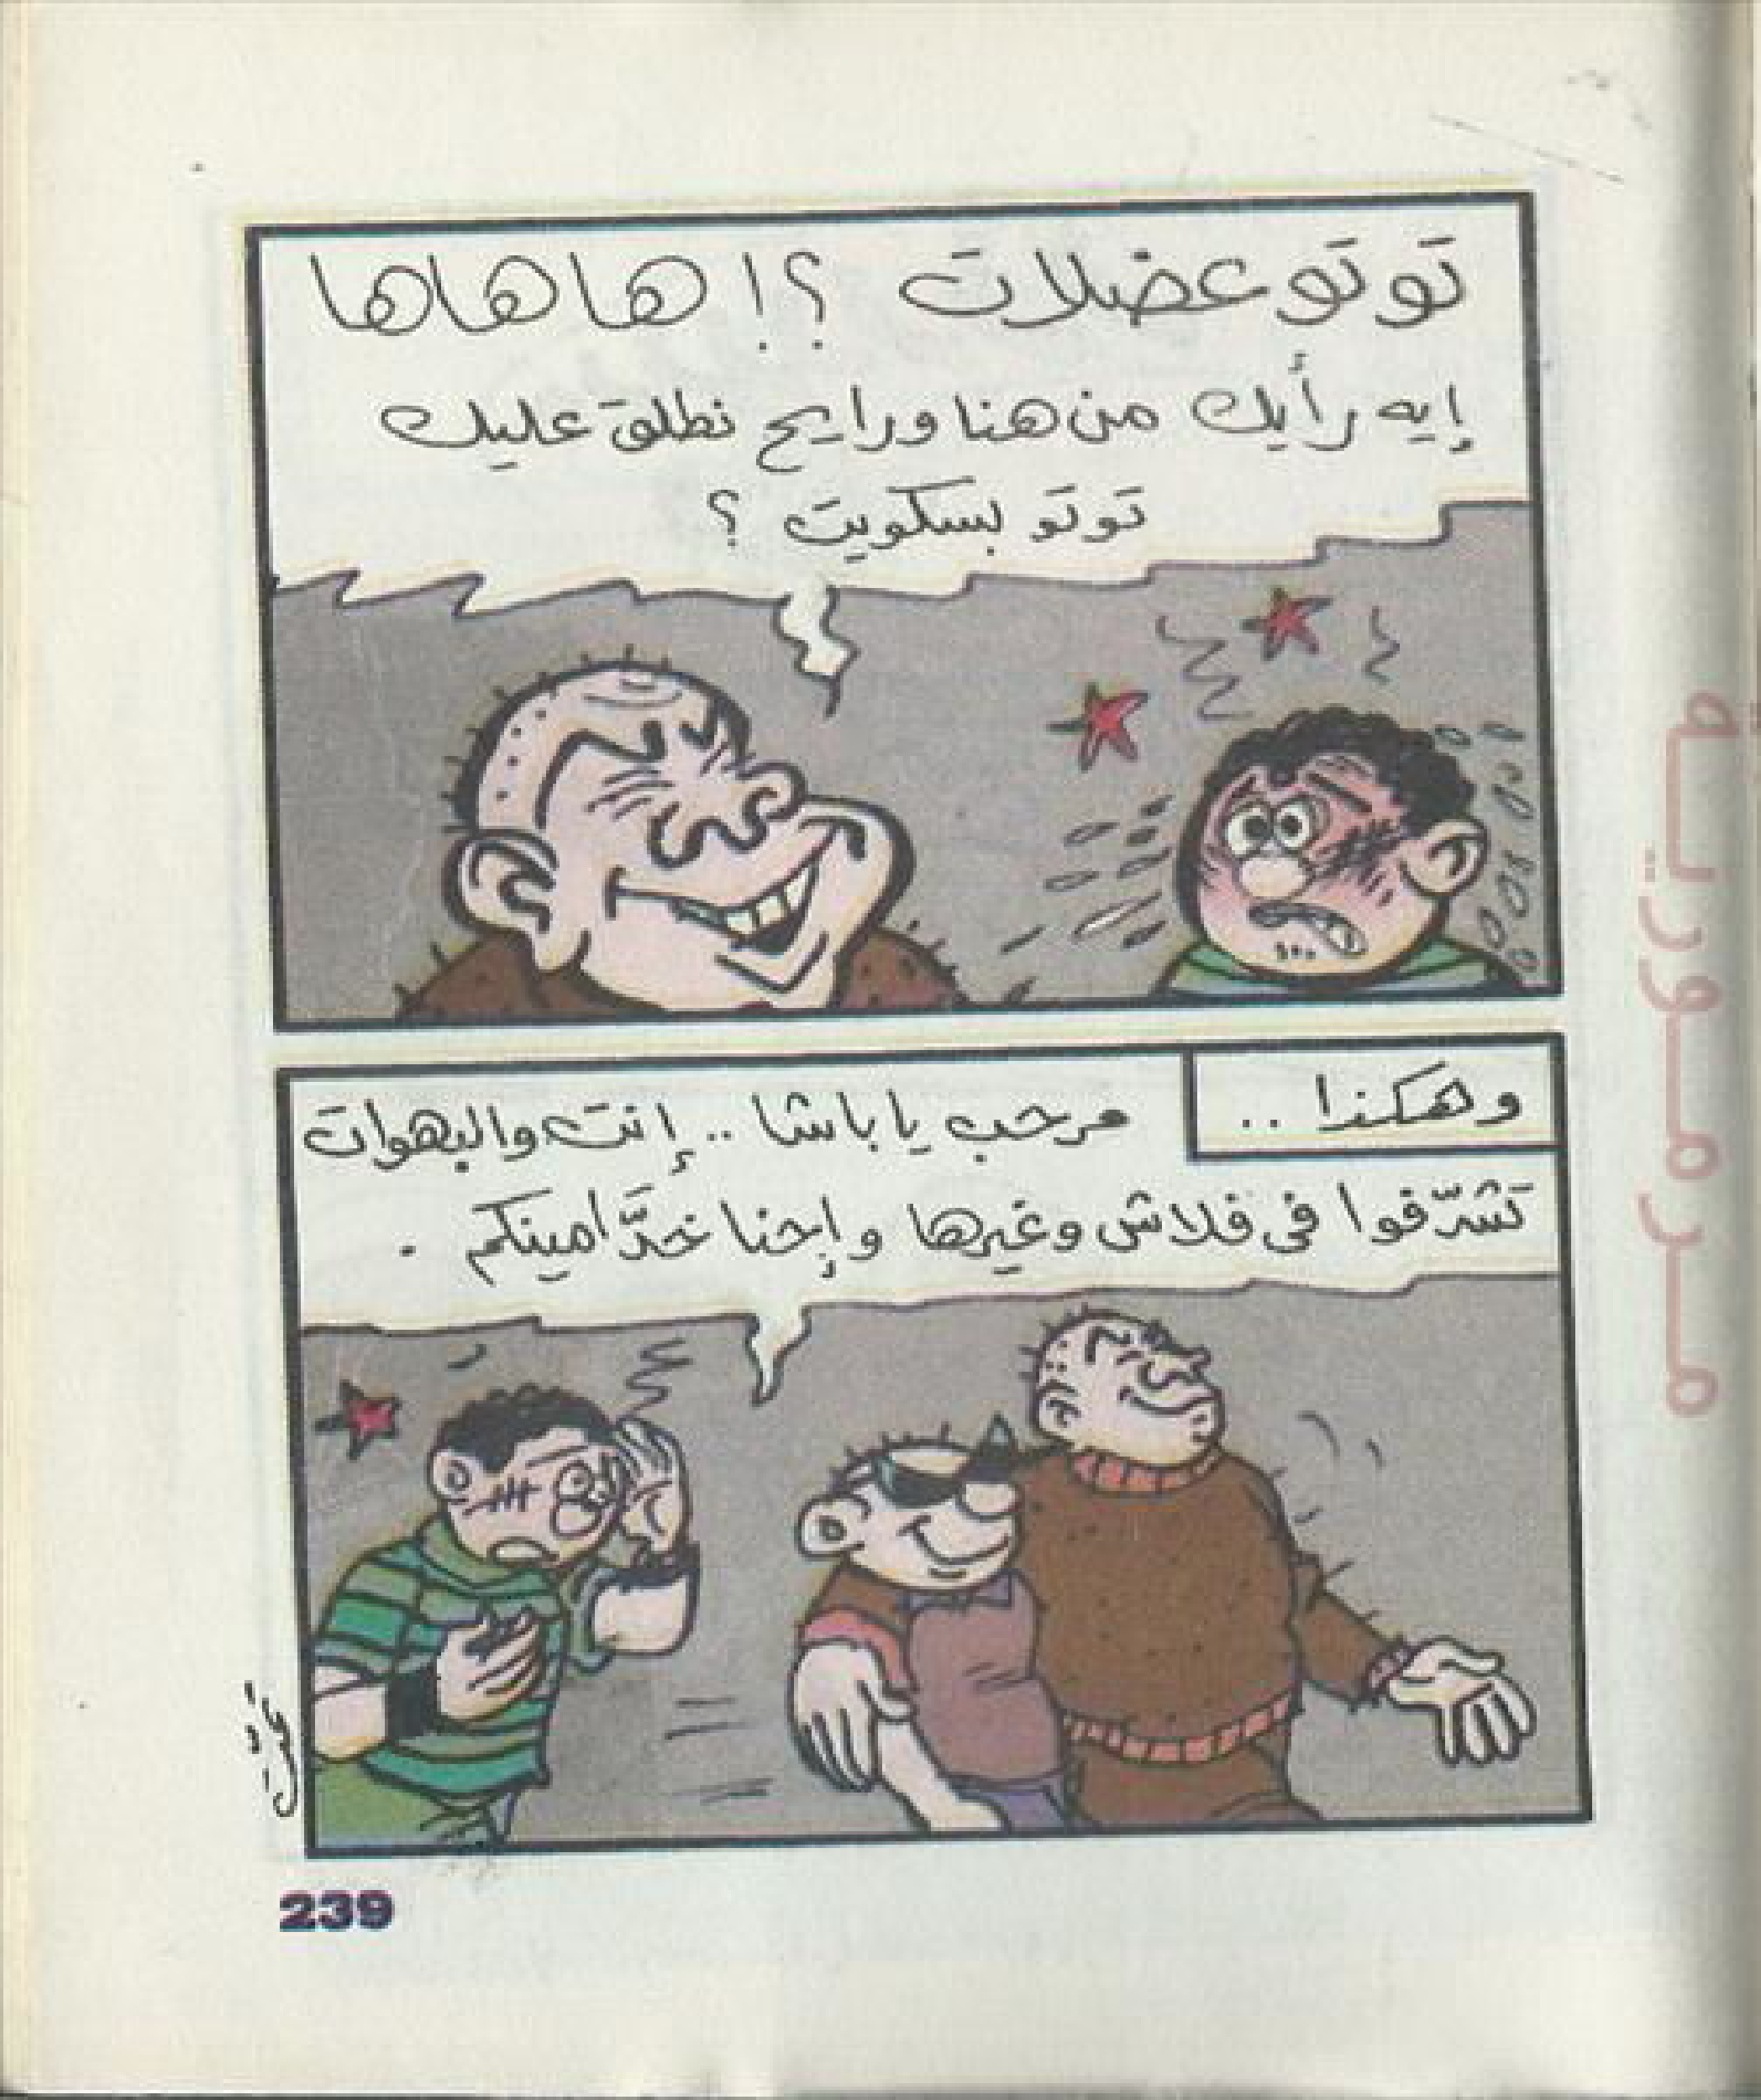 توتو عضلات ؟! هاهاها
إيه رأيك من هنا ورايح نطلق عليك
توتو بسكويت ؟
وهكذا ..
مرحب يا باشا .. إنت والبهوات
تشرّفوا فى فلاش وغيرها وإحنا خدَّامينكم .
239